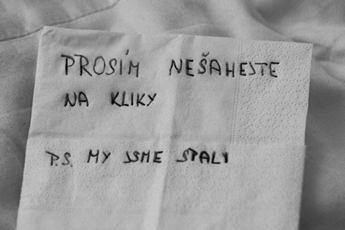 PROSÍM NEŠAHEJTE
NA KLIKY
P.S. MY JSME SPALI